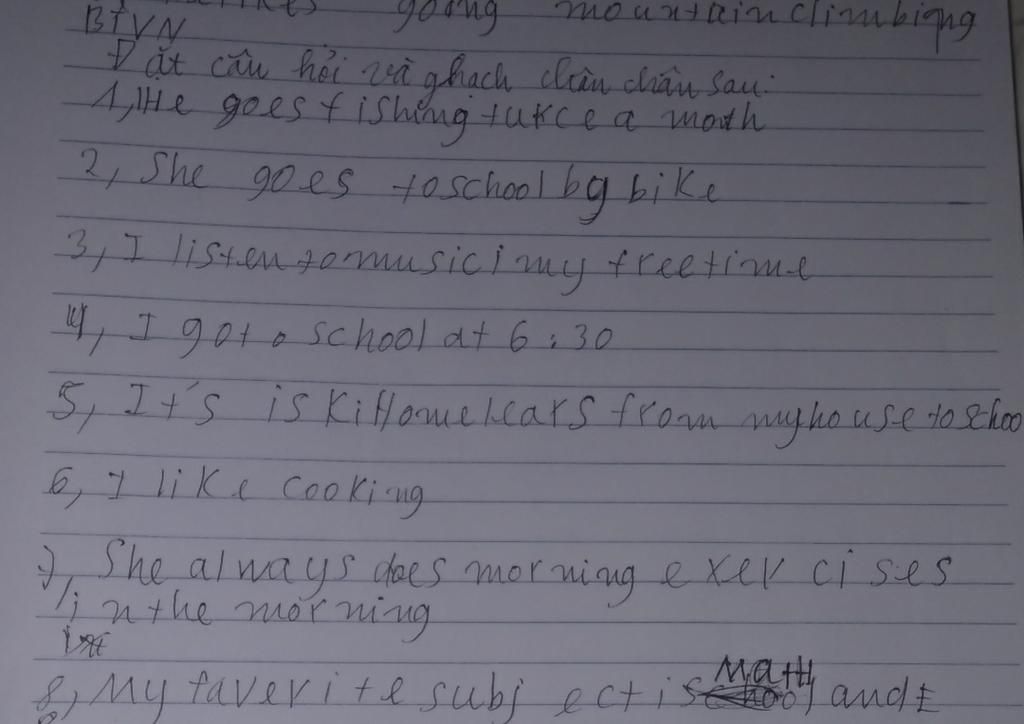 going mountain climbiqng
BTVN
Đặt câu hỏi và ghach chân chân sau:
1, He goes fishing tukce a month
2, She goes to school by bike
3, I listen to music i my free time
4, I go to school at 6:30
5, It's is killomelears from my house to schoo
6, I like cooking
7, She always does morning exercises
in the morning
8, My faverite subject is Math and E